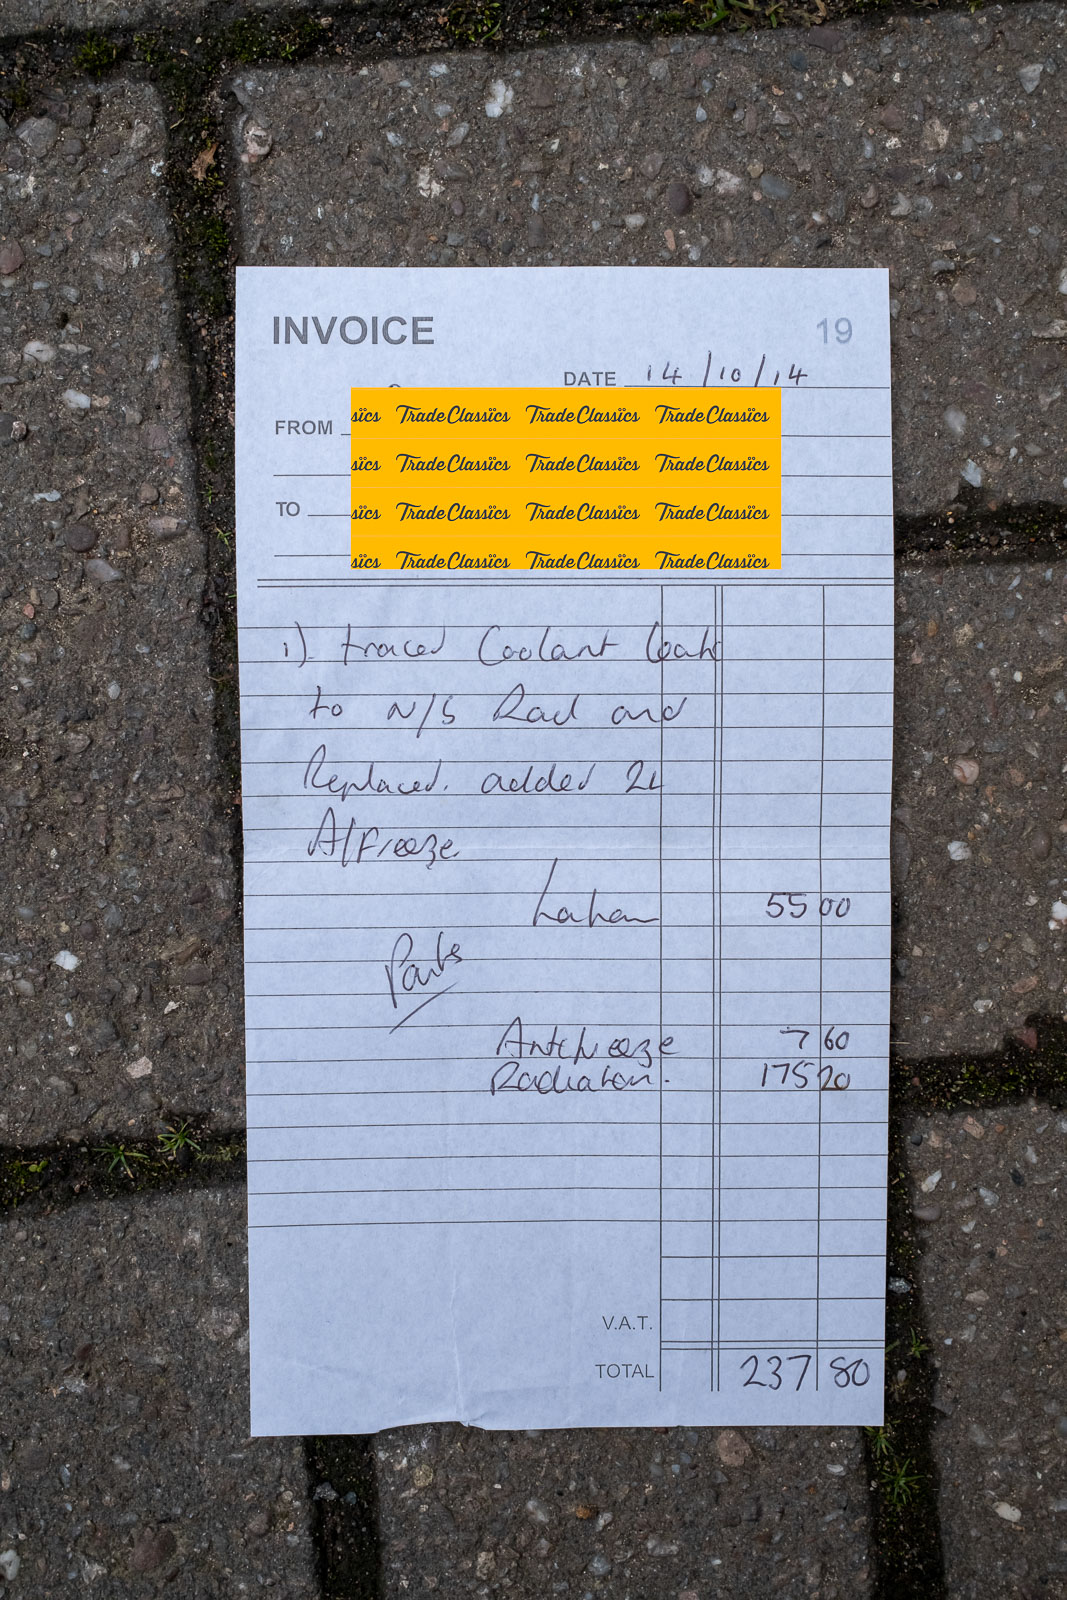 INVOICE 19
DATE 14/10/14
FROM
sics TradeClassics TradeClassics TradeClassics
sics TradeClassics TradeClassics TradeClassics
TO
sics TradeClassics TradeClassics TradeClassics
sics TradeClassics TradeClassics TradeClassics
1). traced Coolant leak
to N/S Rad and
Replaced. added 2L
A/Freeze
Labour 55 00
Parts
Antifreeze 7 60
Radiator. 175 20
V.A.T.
TOTAL 237 80